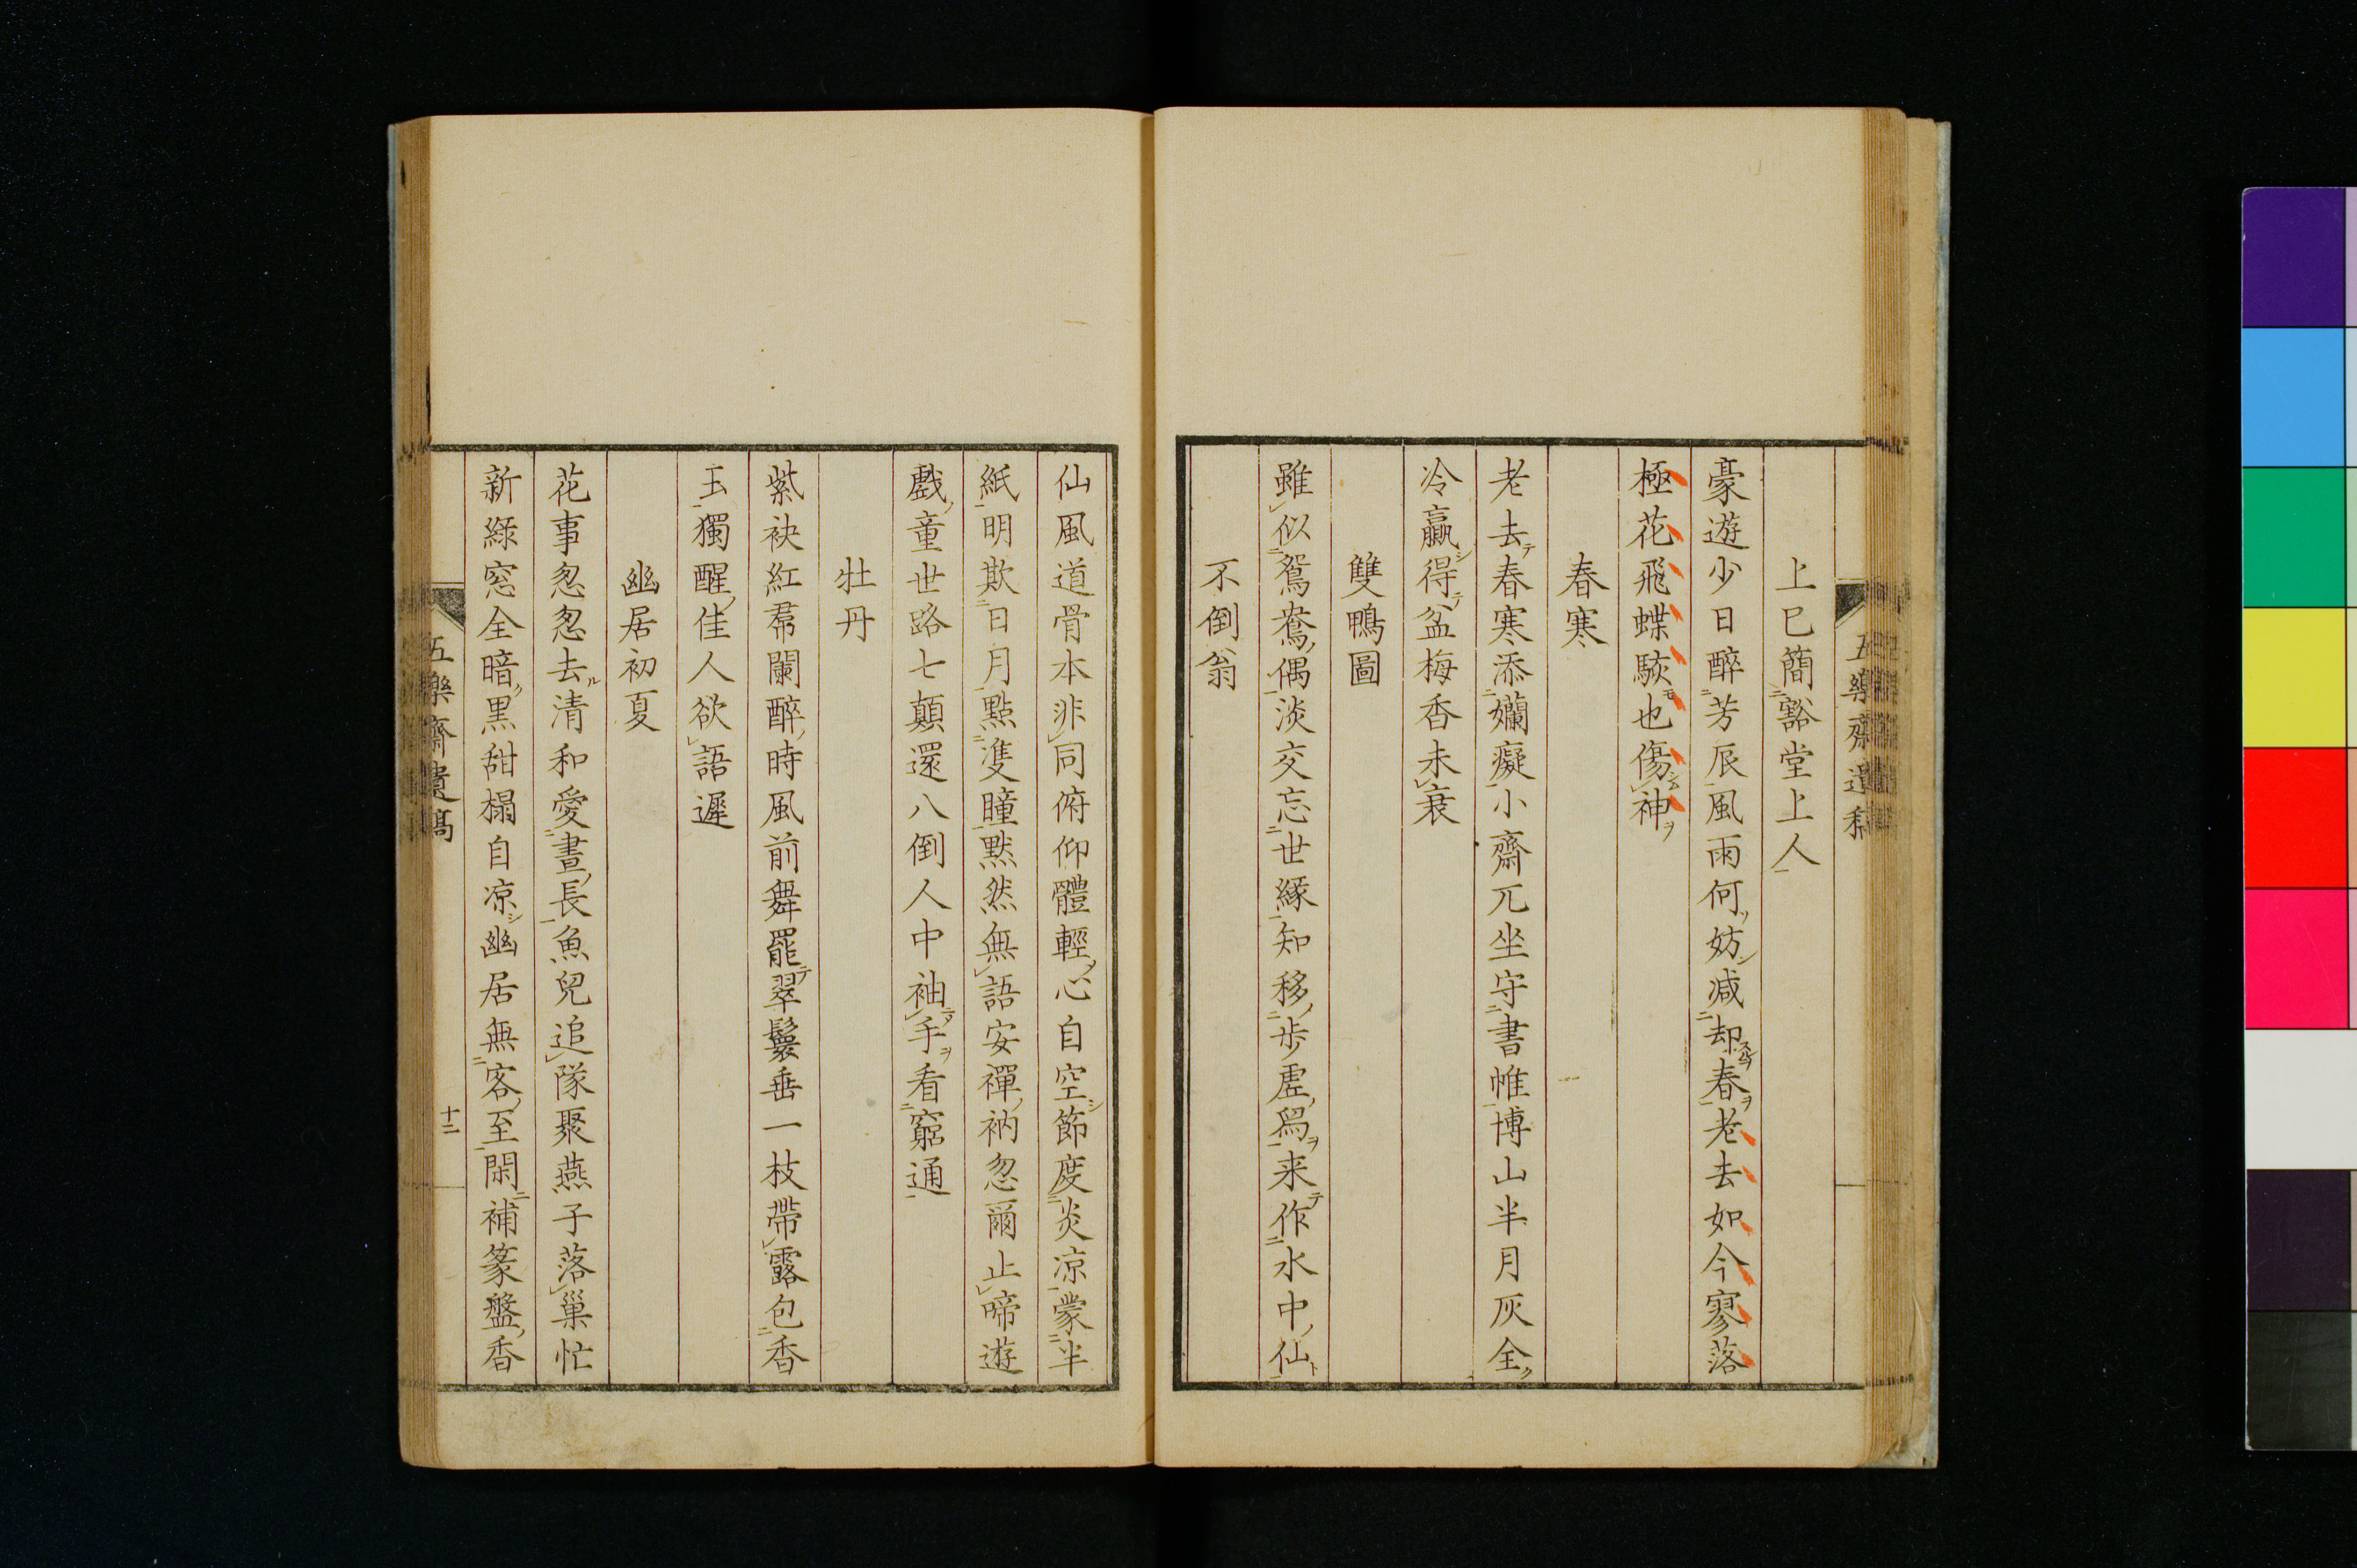 五樂齋遺稿
上巳簡豁堂上人
豪遊少日醉芳辰風雨何妨減却春老去如今寥落
極花飛蝶駭也傷神
春寒
老去春寒添嬾癡小齋兀坐守書帷博山半月灰全
冷贏得盆梅香未衰
雙鴨圖
雖似鴛鴦偶淡交忘世緣知移步虛舄来作水中仙
不倒翁
仙風道骨本非同俯仰體輕心自空節度炎凉蒙半
紙明欺日月點隻瞳默然無語安禪衲忽爾止啼遊
戲童世路七顛還八倒人中袖手看窮通
牡丹
紫袂紅帬闌醉時風前舞罷翠鬟垂一枝帶露包香
玉獨醒佳人欲語遲
幽居初夏
花事怱怱去清和愛晝長魚兒追隊聚燕子落巢忙
新綠窓全暗黒甜榻自凉幽居無客至閑補篆盤香
五樂齋遺稿
十二